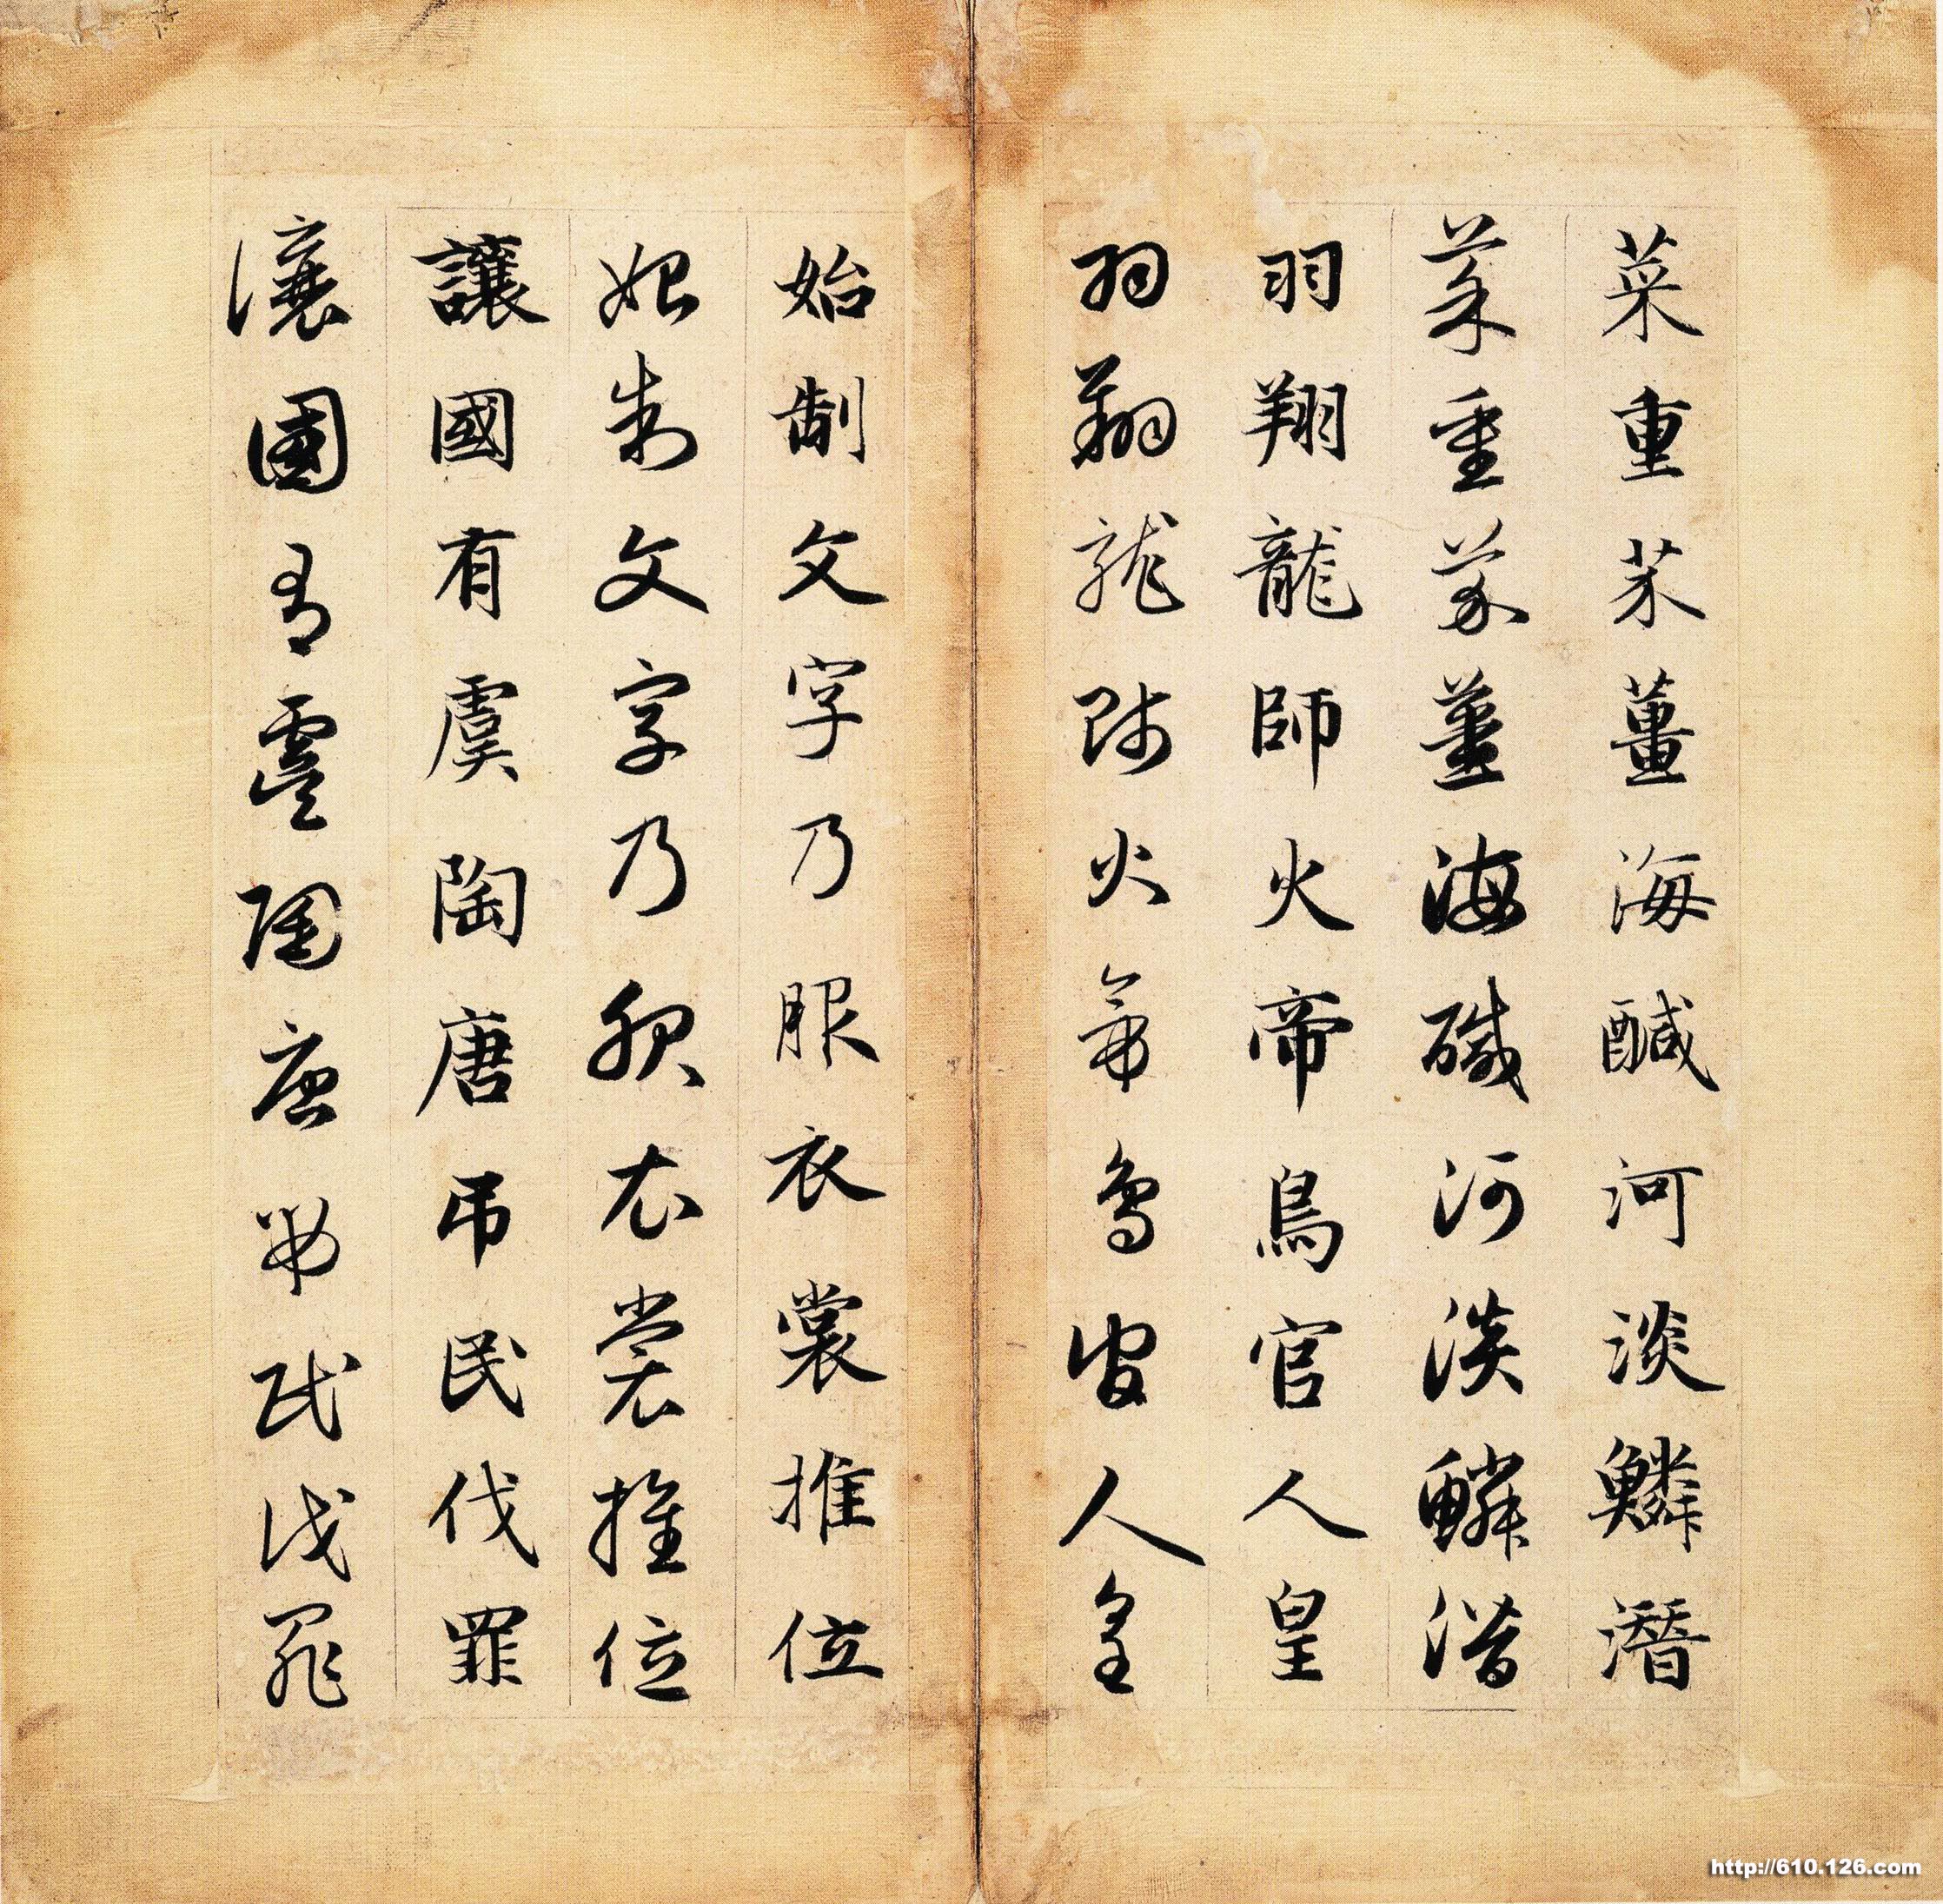 菜重芥薑海鹹河淡鱗潛
菜重芥薑海鹹河淡鱗潛
羽翔龍師火帝鳥官人皇
羽翔龍師火帝鳥官人皇
始制文字乃服衣裳推位
始制文字乃服衣裳推位
讓國有虞陶唐弔民伐罪
讓國有虞陶唐弔民伐罪
http://610.126.com